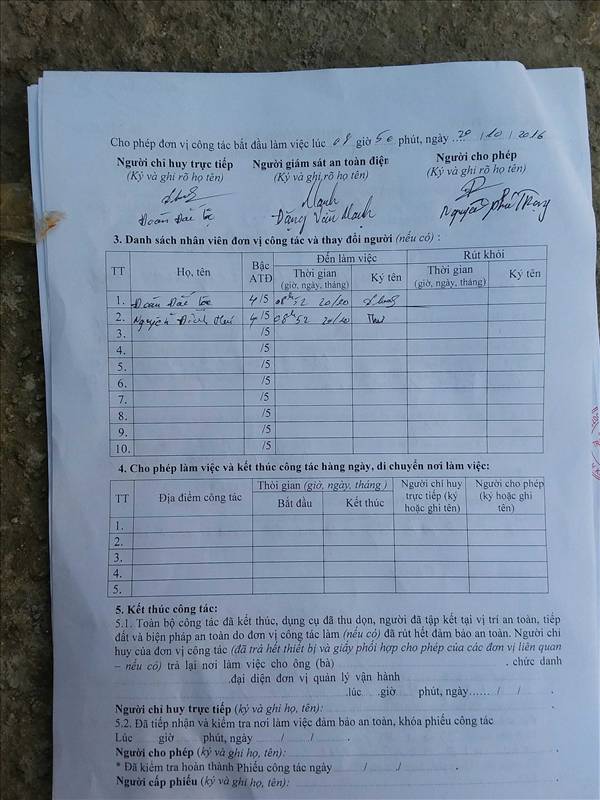 Cho phép đơn vị công tác bắt đầu làm việc lúc 08 giờ 50 phút, ngày 20 / 10 / 2016
Người chỉ huy trực tiếp Người giám sát an toàn điện Người cho phép
(Ký và ghi rõ họ tên) (Ký và ghi rõ họ tên) (Ký và ghi rõ họ tên)
Mạnh
Đoàn Đắc Đặng Văn Mạnh Nguyễn Phú
3. Danh sách nhân viên đơn vị công tác và thay đổi người (nếu có) :
TT Họ, tên Bậc ATĐ Đến làm việc Rút khỏi
Thời gian (giờ, ngày, tháng) Ký tên Thời gian (giờ, ngày, tháng) Ký tên
1. Đoàn Đắc 4/5 08h52 20/10
2. Nguyễn Đình 4/5 08h52 20/10
3. /5
4. /5
5. /5
6. /5
7. /5
8. /5
9. /5
10. /5
4. Cho phép làm việc và kết thúc công tác hàng ngày, di chuyển nơi làm việc:
TT Địa điểm công tác Thời gian (giờ, ngày, tháng ) Người chỉ huy trực tiếp (ký hoặc ghi tên) Người cho phép (ký hoặc ghi tên)
Bắt đầu Kết thúc
1.
2.
3.
4.
5.
5. Kết thúc công tác:
5.1. Toàn bộ công tác đã kết thúc, dụng cụ đã thu dọn, người đã tập kết tại vị trí an toàn, tiếp
đất và biện pháp an toàn do đơn vị công tác làm (nếu có) đã rút hết đảm bảo an toàn. Người chỉ
huy của đơn vị công tác (đã trả hết thiết bị và giấy phối hợp cho phép của các đơn vị liên quan
– nếu có) trả lại nơi làm việc cho ông (bà) . chức danh
.đại diện đơn vị quản lý vận hành
.lúc .giờ phút, ngày...... / / .
Người chỉ huy trực tiếp (ký và ghi họ, tên):
5.2. Đã tiếp nhận và kiểm tra nơi làm việc đảm bảo an toàn, khóa phiếu công tác
Lúc giờ phút, ngày / / .
Người cho phép (ký và ghi họ, tên):
* Đã kiểm tra hoàn thành Phiếu công tác ngày / ./ .
Người cấp phiếu (ký và ghi họ, tên):